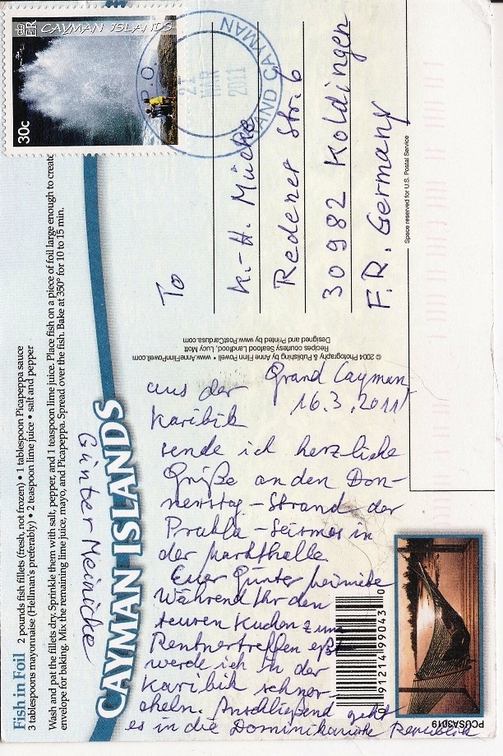 CAYMAN ISLANDS
30c
P.O.
GRAND CAYMAN
21
MAR
2011
To
K.-H. Mücke
Redener Str. 6
30982 Koldingen
F.R. Germany
Space reserved for U.S. Postal Service
© 2004 Photography & Publishing by Anne Finn Powell • www.AnneFinnPowell.com
Recipes courtesy Seafood Landfood, Lucy Mott
Designed and Printed by www.PostCardusa.com
Grand Cayman
16.3.2011
aus der
Karibik
sende ich herzliche
Grüße an den Don-
nerstag-Strand der
Prakla-Seismos in
der Markthalle.
Euer Günter Meinicke
Während Ihr den
teuren Kuchen zum
Rentnertreffen eßt
werde ich in der
Karibik schnor-
cheln. Anschließend geht
es in die Dominikanische Republik
Günter Meinicke
CAYMAN ISLANDS
Fish in Foil 2 pounds fish fillets (fresh, not frozen) • 1 tablespoon Picapeppa sauce
3 tablespoons mayonnaise (Hellman's preferably) • 2 teaspoon lime juice • salt and pepper
Wash and pat the fillets dry. Sprinkle them with salt, pepper, and 1 teaspoon lime juice. Place fish on a piece of foil large enough to create
envelope for baking. Mix the remaining lime juice, mayo, and Picapeppa. Spread over the fish. Bake at 350° for 10 to 15 min.
9 12149 90433 0
PCUSA3019